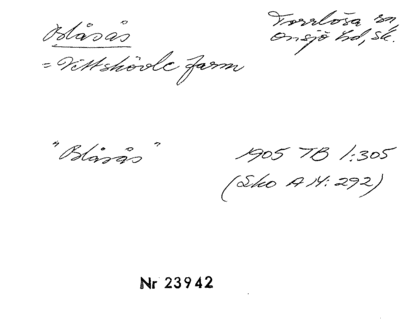 Blåsås
Torrlösa sn,
Onsjö hd, Sk.
= Vittskövle farm
"Blåsås"
1905 TB 1:305
(Sko A H: 292)
Nr 23942